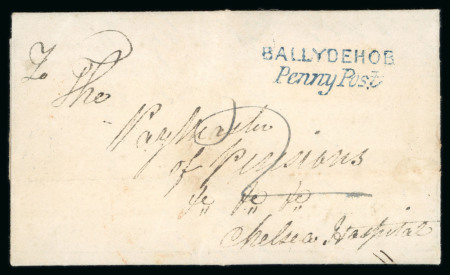 BALLYDEHOB
Penny Post
To
The
PayMaster
of Pensions
&c &c &c
Chelsea Hospital